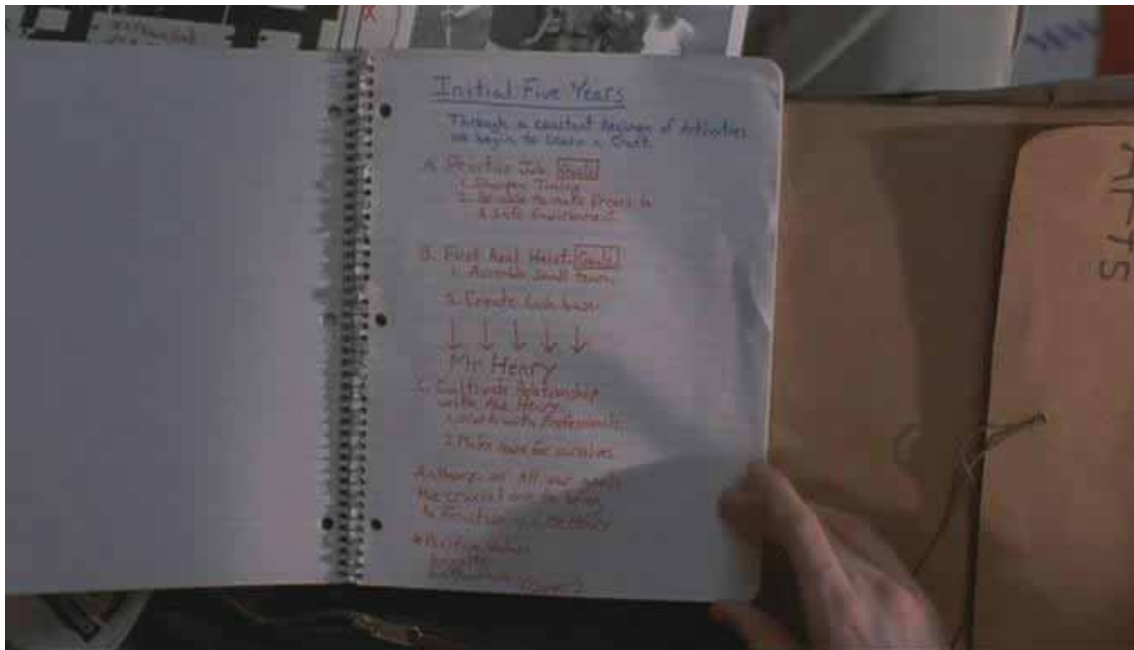 Initial Five Years
Through a constant Regimen of Activities
we begin to Learn a Craft.
A. Practice Job Goals
1. Sharpen Timing
2. Be able to make Errors in
A Safe Environment
B. First Real Heist: Goals
1. Assemble Small Team.
2. Create Cash base.
Mr. Henry
C. Cultivate Relationship
with Abe Henry
1. Work with Professionals.
2. Make name for ourselves.
Anthony- of All our goals
the crucial one to bring
to Fruition
* Positive Values